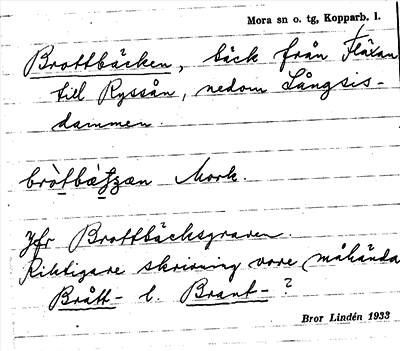 Mora sn o. tg, Kopparb. l.
Brottbäcken, bäck från Fläxan
till Ryssån, nedom Långsis-
dammen.
Mork.
Jfr Brottbäcksgraven.
Riktigare skrivning vore måhända
Brått- l. Brant- ?
Bror Lindén 1933